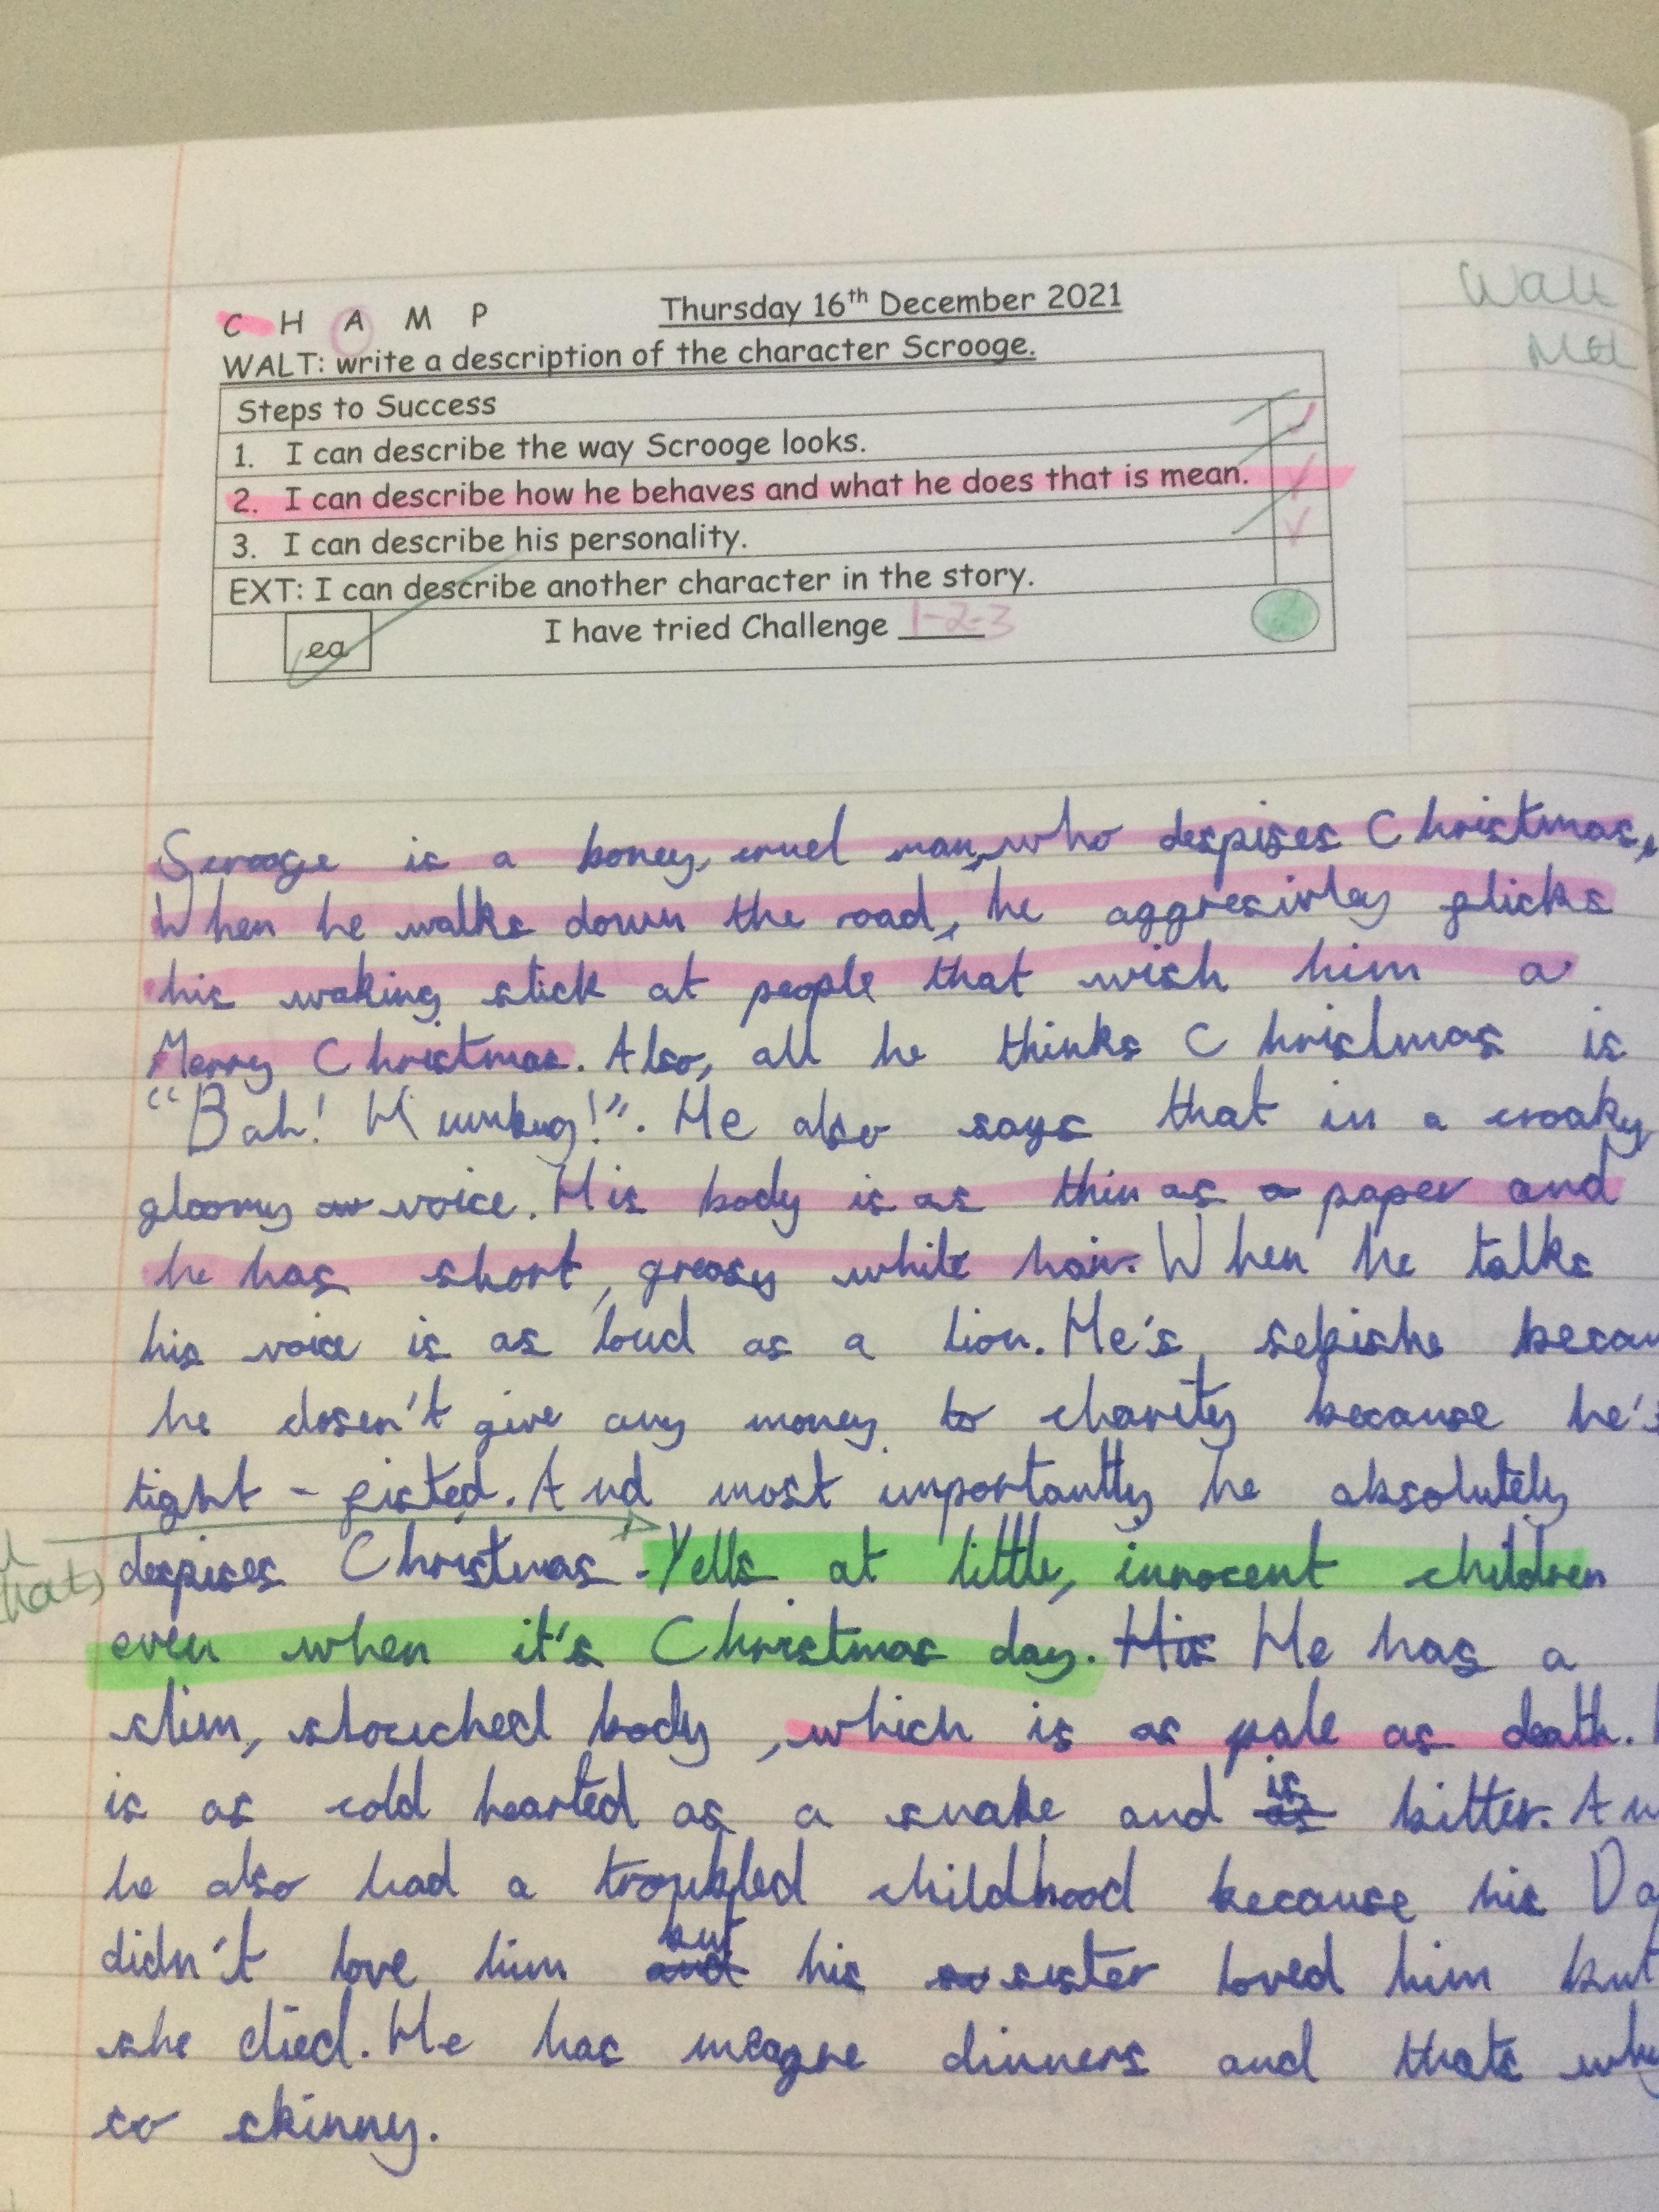 Walt
Met
C H A M P Thursday 16th December 2021
WALT: write a description of the character Scrooge.
Steps to Success
1. I can describe the way Scrooge looks.
2. I can describe how he behaves and what he does that is mean.
3. I can describe his personality.
EXT: I can describe another character in the story.
ea I have tried Challenge 1-2-3
Scrooge is a boney, cruel man, who despises Christmas.
When he walks down the road, he aggresivley flicks
his waking stick at people that wish him a
Merry Christmas. Also, all he thinks Christmas is
"Bah! Humbug!". He also says that in a croaky
gloomy voice. His body is as thin as a paper and
he has short, greasy white hair. When he talks
his voice is as loud as a lion. He's sefishe becau
he dosen't give any money to charity because he's
tight-fisted. And most importantly he absolutely
despises Christmas. Yells at little, innocent children
even when it's Christmas day. His He has a
slim, slouched body, which is as pale as death.
is as cold hearted as a snake and as is bitter. An
he also had a troubled childhood because his Da
didn't love him and but his sister loved him but
she died. He has meagre dinners and thats why
so skinny.